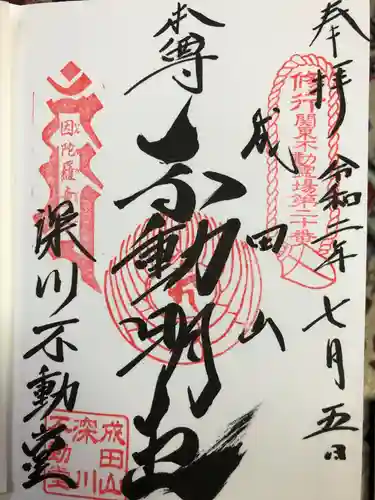 奉拝 令和二年七月五日
修行 関東不動霊場第二十番
成田山
本尊 不動明王
因陀羅尊
深川不動堂
成田山
深川
不動堂